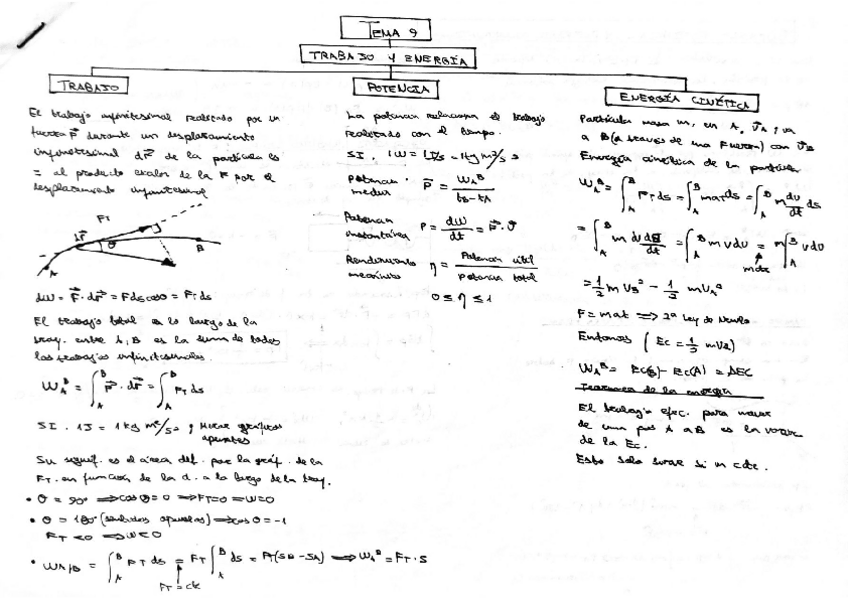 TEMA 9
TRABAJO Y ENERGÍA
TRABAJO
El trabajo infinitesimal realizado por un
fuerza F⃗ durante un desplazamiento
infinitesimal dr⃗ de la partícula es
= al producto escalar de la F por el
desplazamiento infinitesimal
FT
dr⃗
θ
A
B
dW = F⃗ · dr⃗ = F ds cosθ = FT ds
El trabajo total es lo largo de la
tray. entre A, B es la suma de todos
los trabajos infinitesimales.
W_A^B = ∫_A^B F⃗ · dr⃗ = ∫_A^B FT ds
SI. 1J = 1 kg m²/s² ; Mirar gráficas
apuntes
Su signif. es el área def. por la gráf. de la
FT. en función de la d. a lo largo de la tray.
• θ = 90° ⟹ cos θ = 0 ⟹ FT=0 ⟹ W=0
• θ = 180° (sentidos opuestos) ⟹ cos θ = -1
FT < 0 ⟹ W < 0
• W_A^B = ∫_A^B FT ds = FT ∫_A^B ds = FT (SB - SA) ⟹ W_A^B = FT · S
FT = cte
POTENCIA
La potencia relaciona el trabajo
realizado con el tiempo.
SI. 1W = 1J/s = 1kg m²/s³
Potencia media P̄ = W_A^B / tB - tA
Potencia instantánea P = dW/dt = F⃗ · v⃗
Rendimiento η = Potencia útil / potencia total
0 ≤ η ≤ 1
ENERGÍA CINÉTICA
Partícula masa m, en A, v⃗A ; va
a B (a través de una Fuerza) con v⃗B
Energía cinética de la partícula
W_A^B = ∫_A^B FT ds = ∫_A^B maT ds = ∫_A^B m dv/dt ds
= ∫_A^B m dv ds/dt = ∫_A^B m v dv = m ∫_A^B v dv
m cte
= 1/2 m VB² - 1/2 m VA²
F = maT ⟹ 2ª Ley de
Entonces (Ec = 1/2 m
W_A^B = Ec(B) - Ec(A) = ΔEC
Teorema de la energía
El trabajo efec. para mover
de una pos A a B es la
de la Ec.
Esto solo sirve si m cte.